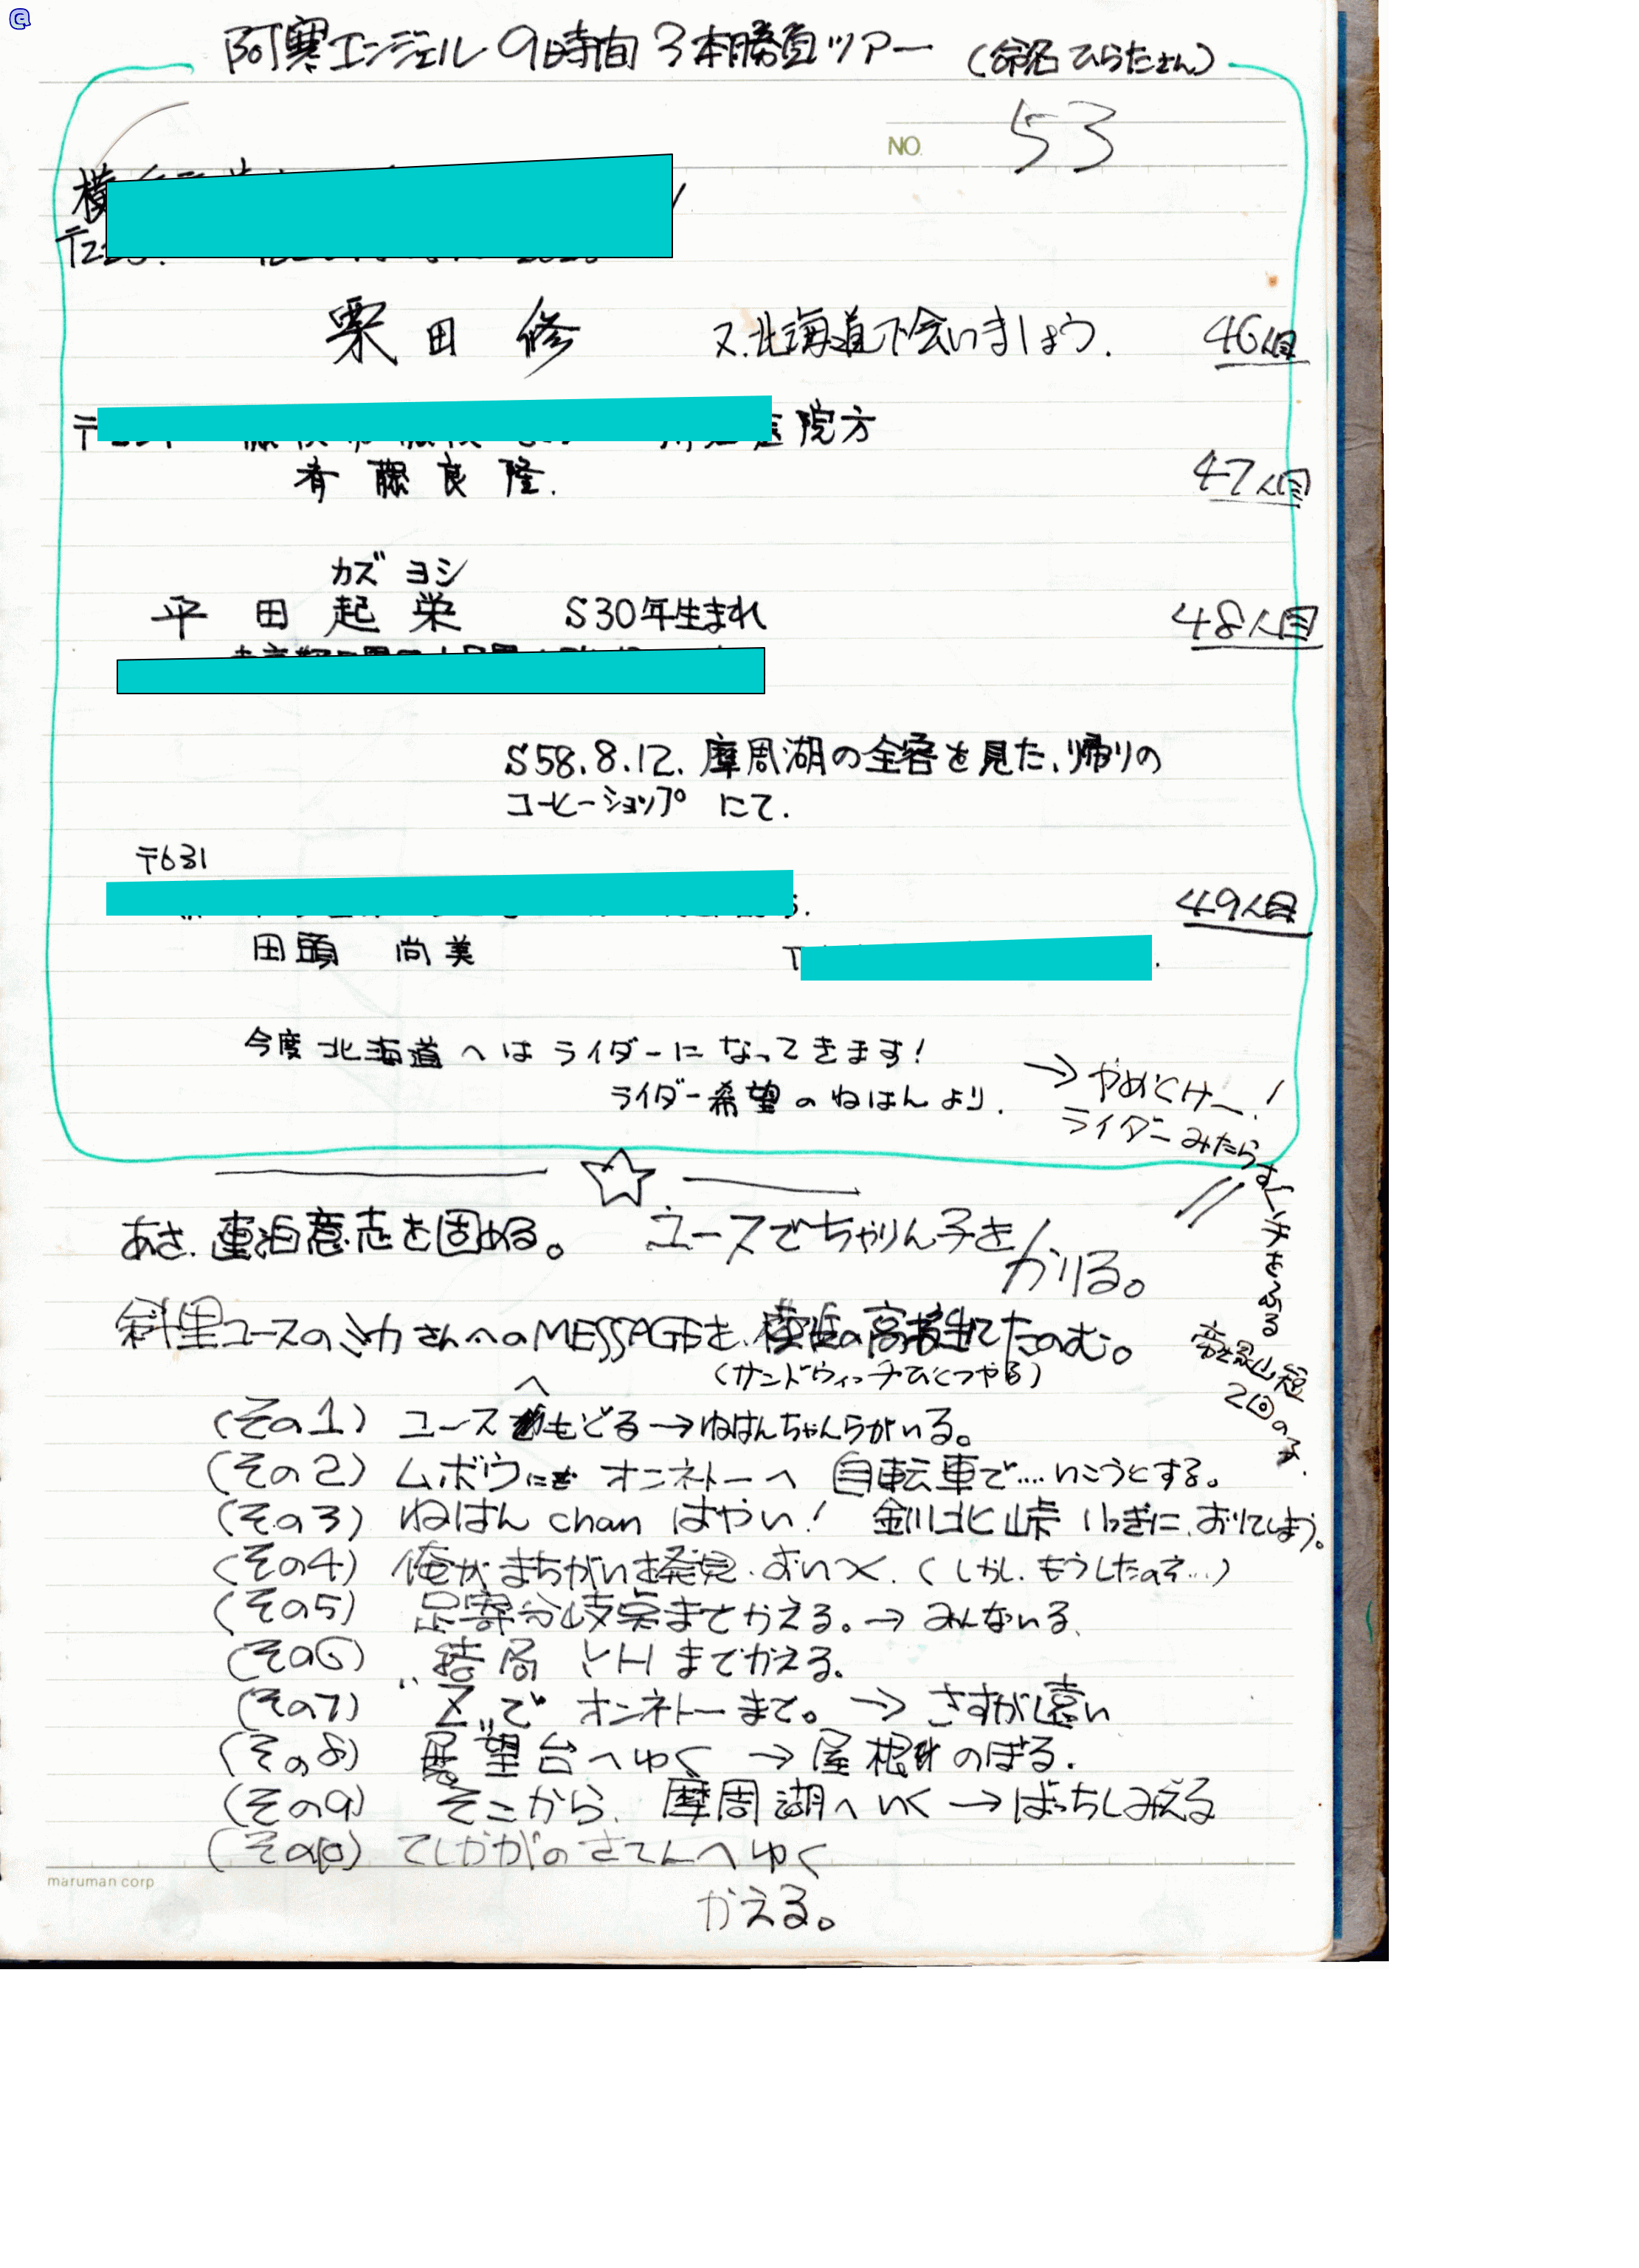 阿寒エンジェル 9時間 3本勝負ツアー (命名 ひらたさん)
NO. 53
横
栗田 修 又、北海道で会いましょう. 46人目
院方
斉藤良隆. 47人目
カズ ヨシ
平田 起栄 S30年生まれ 48人目
S58.8.12. 摩周湖の全容を見た、帰りの
コーヒーショップ にて.
〒631
49人目
田頭 尚美
今度 北海道へは ライダーに なってきます!
ライダー希望のねはんより.
→やめとけー!
ライダーみたらすぐ手をふる
帝塚山短
2回の子.
あさ、連泊意志を固める。 ユースでちゃりん子を
かりる。
斜里ユースのミカさんへのMESSAGEを、横浜の高校生にたのむ。
(サンドウィッチひとつやる)
(その1) ユースへもどる→ねはんちゃんらがいる。
(その2) ムボウにも オンネトーへ 自転車で....いこうとする。
(その3) ねはん chan はやい! 釧北峠 いっきに、おりてしまう。
(その4) 俺がまちがいを発見.おいつく.(しかし、もうしたのそ…)
(その5) 足寄分岐点までかえる。→みんないる、
(その6) 結局 YHまでかえる、
(その7) "Z"で オンネトーまで。→さすが遠い
(その8) 展望台へゆく → 屋根のぼる.
(その9) そこから、摩周湖へいく→ばっちしみえる
(その10) てしかがのさてんへゆく
かえる。
maruman corp